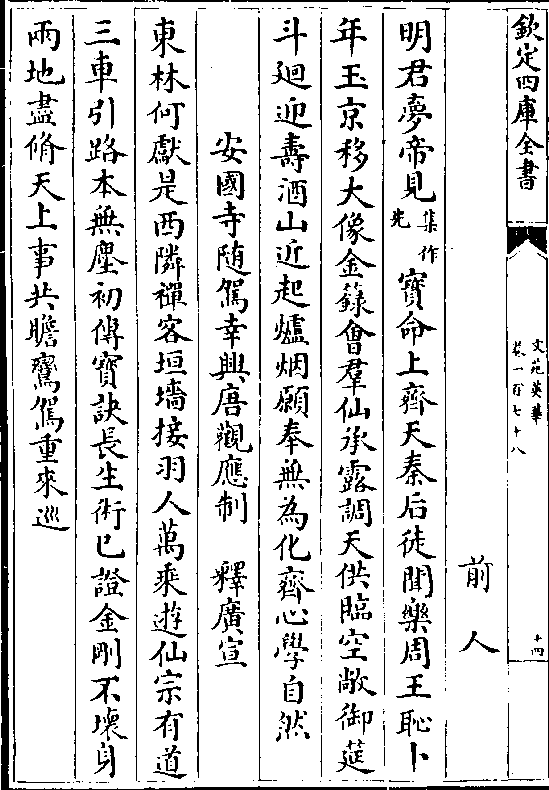 欽定四庫全書
文苑英華
卷一百七十八
十四
前人
明君夢帝見集作先寶命上齊天秦后徒聞樂周王恥卜
年玉京移大像金籙會羣仙承露調天供臨空敞御筵
斗廻迎壽酒山近起爐烟願奉無為化齊心學自然
安國寺隨駕幸興唐觀應制 釋廣宣
東林何獻是西隣禪客垣墻接羽人萬乘遊仙宗有道
三車引路本無塵初傳寶訣長生術已證金剛不壞身
兩地盡脩天上事共瞻鸞駕重來巡